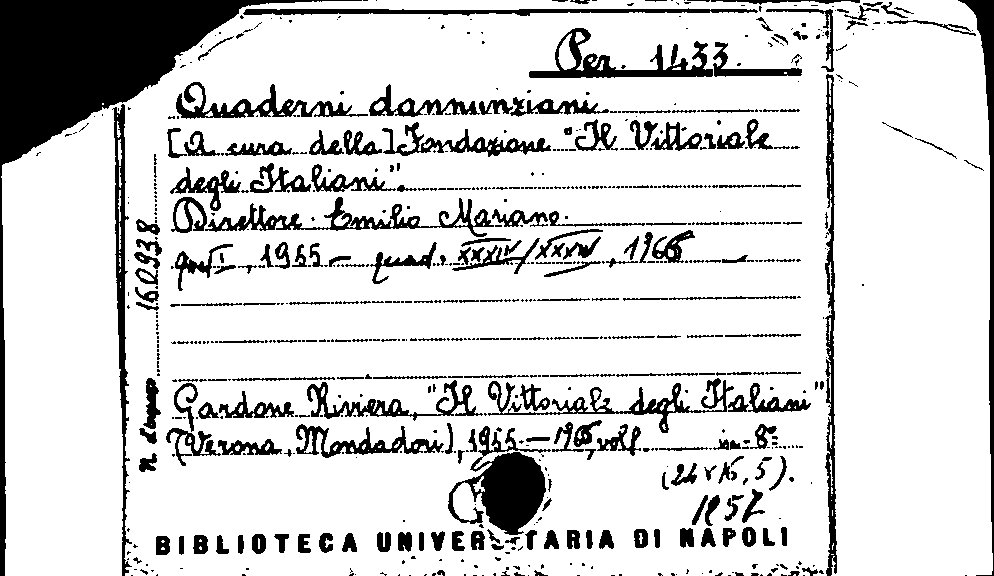 Per. 1433.
Quaderni dannunziani.
[A cura della] Fondazione "Il Vittoriale
degli Italiani".
Direttore. Emilio Mariano.
I, 1955 — quad. XXXIV/, 1966 —
Gardone Riviera, "Il Vittoriale degli Italiani"
(Verona, Mondadori), 1955 — 1966, voll. in-8º
(24 x 16,5).
1957
N. d'ingresso 160938
BIBLIOTECA UNIVERSITARIA DI NAPOLI